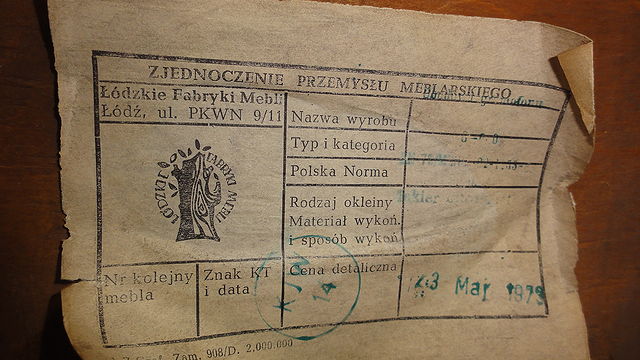 ZJEDNOCZENIE PRZEMYSŁU MEBLARSKIEGO
Łódzkie Fabryki Mebli
Łódź, ul. PKWN 9/11
ŁÓDZKIE FABRYKI MEBLI
Nazwa wyrobu
Typ i kategoria
Polska Norma
Rodzaj okleiny
Materiał wykoń.
i sposób wykoń
Nr kolejny
mebla
Znak KT
i data
KJW
14
Cena detaliczna
23 Maj 1973
Zam. 908/D. 2.000.000